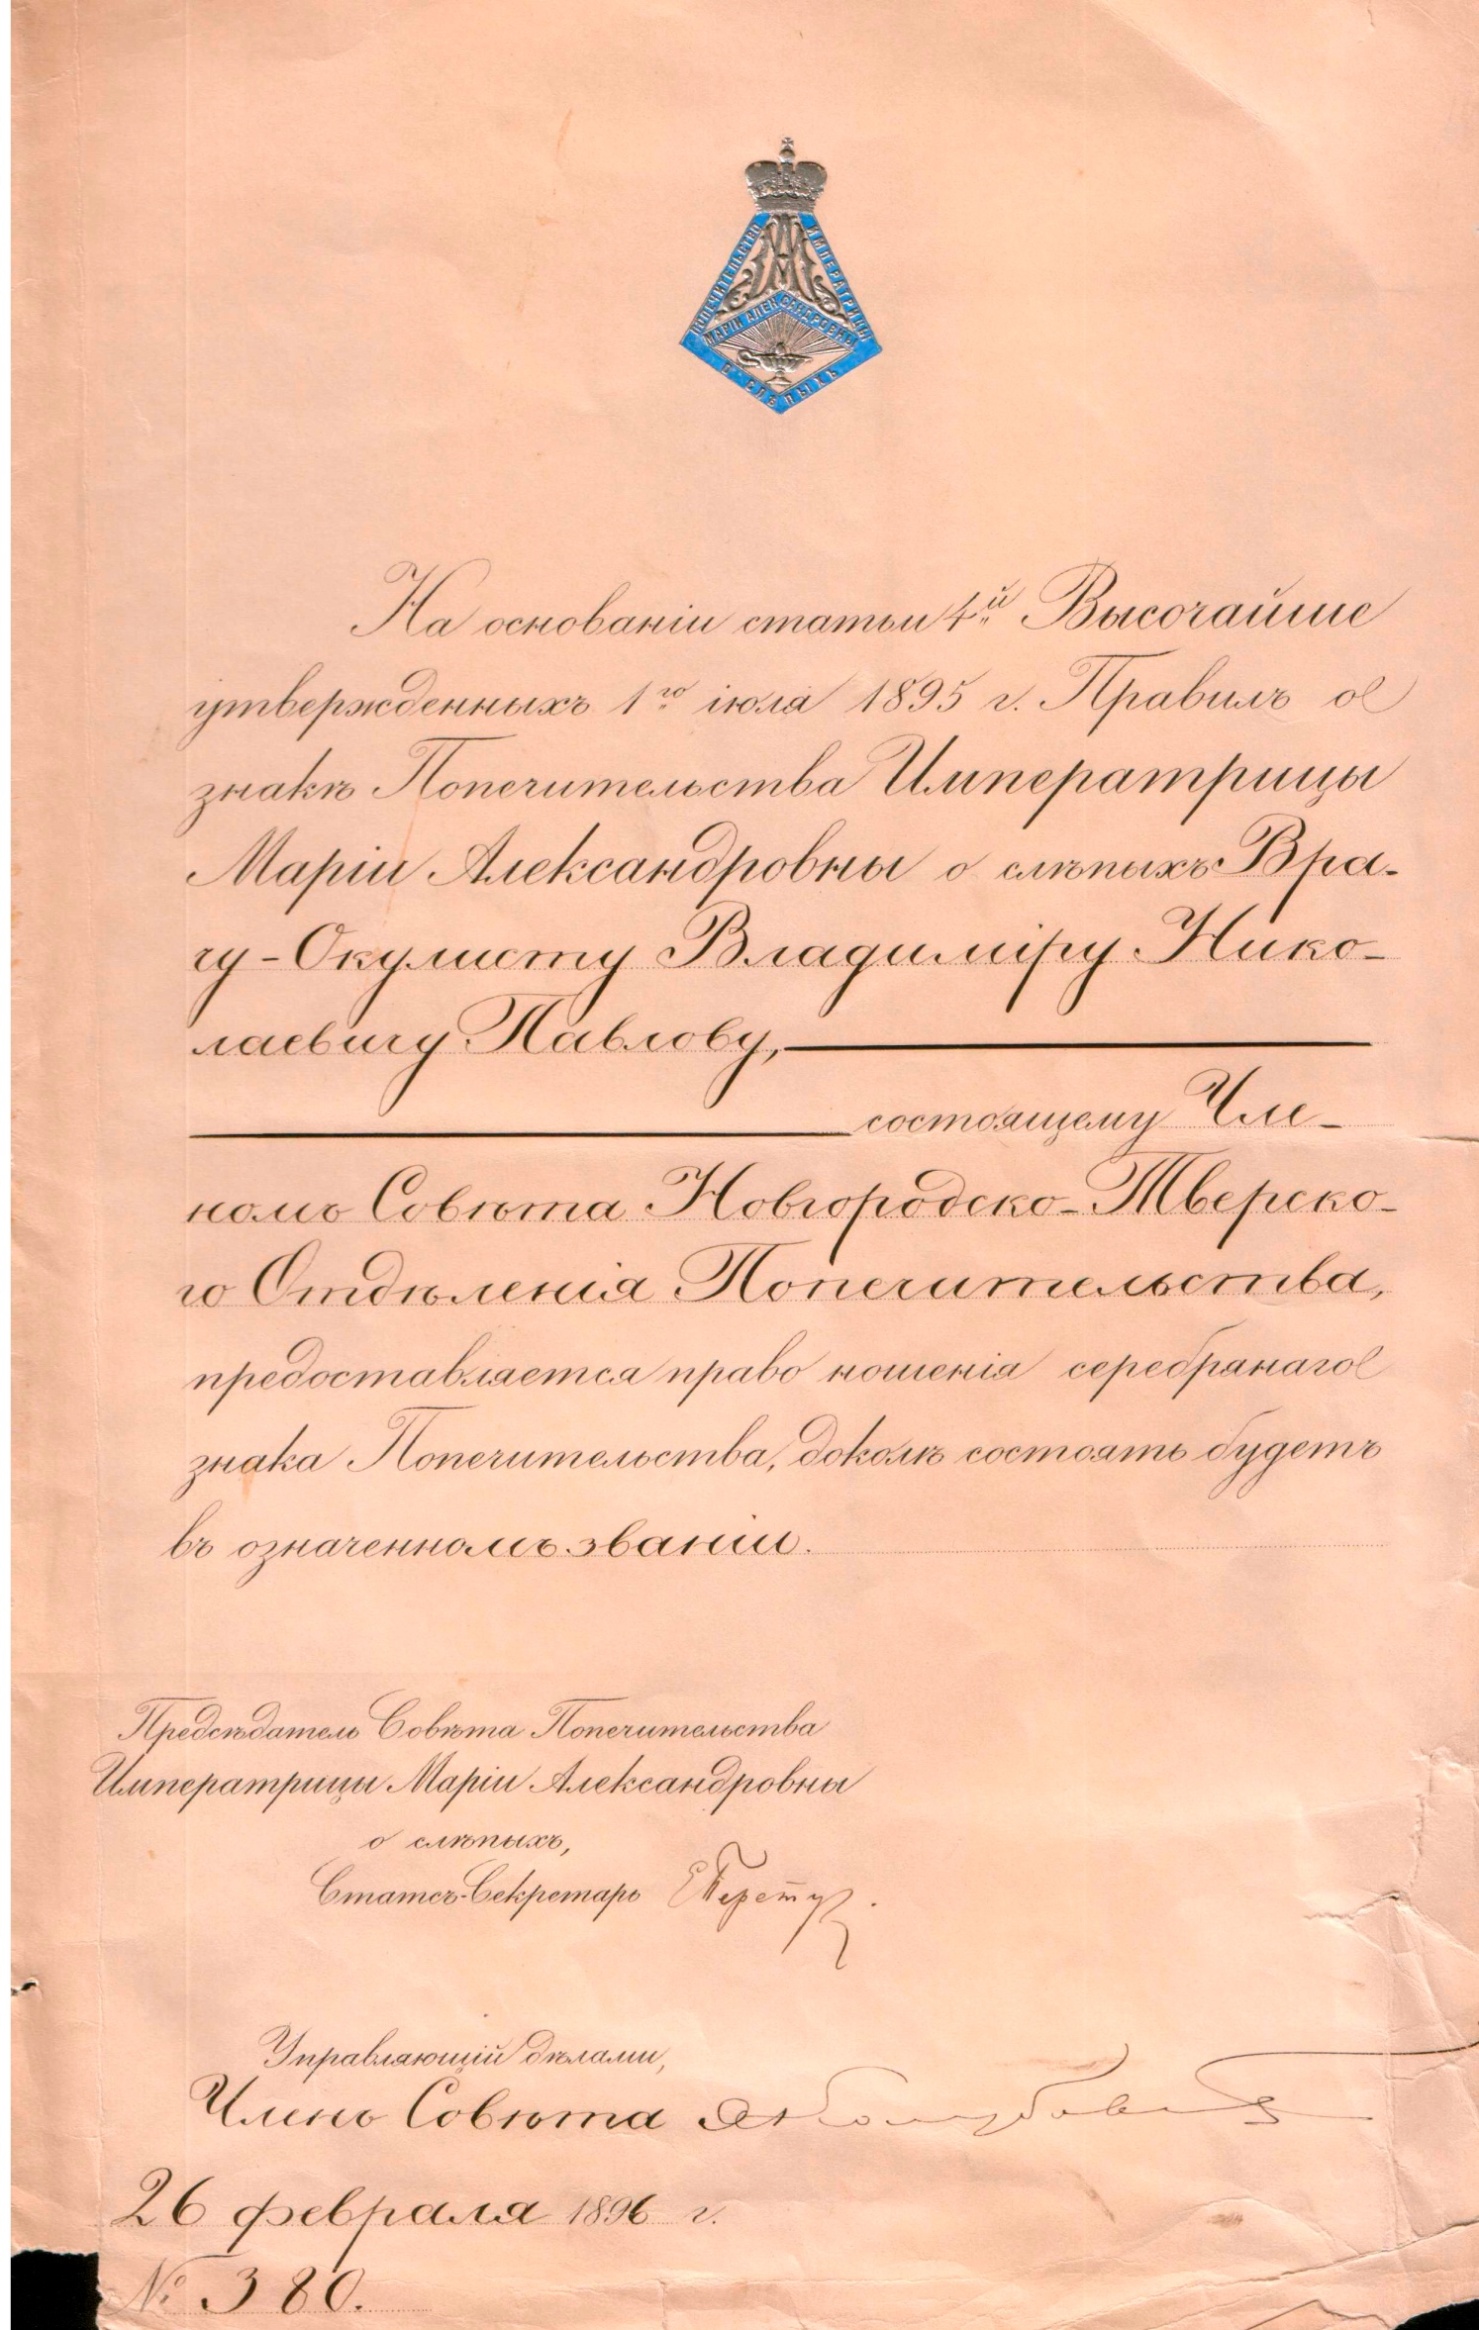 ПОПЕЧИТЕЛЬСТВО ИМПЕРАТРИЦЫ
МАРІИ АЛЕКСАНДРОВНЫ
О СЛѢПЫХЪ
На основаніи статьи 4й Высочайше
утвержденныхъ 1го іюля 1895 г. Правилъ о
знакѣ Попечительства Императрицы
Маріи Александровны о слѣпыхъ Вра-
чу-Окулисту Владиміру Нико-
лаевичу Павлову,
состоящему Чле-
номъ Совѣта Новгородско-Тверско-
го Отдѣленія Попечительства,
предоставляется право ношенія серебрянаго
знака Попечительства, доколѣ состоять будетъ
въ означенномъ званіи.
Предсѣдатель Совѣта Попечительства
Императрицы Маріи Александровны
о слѣпыхъ,
Статсъ-Секретарь ЕПеретцъ.
Управляющій дѣлами,
Членъ Совѣта
26 февраля 1896 г.
№ 380.